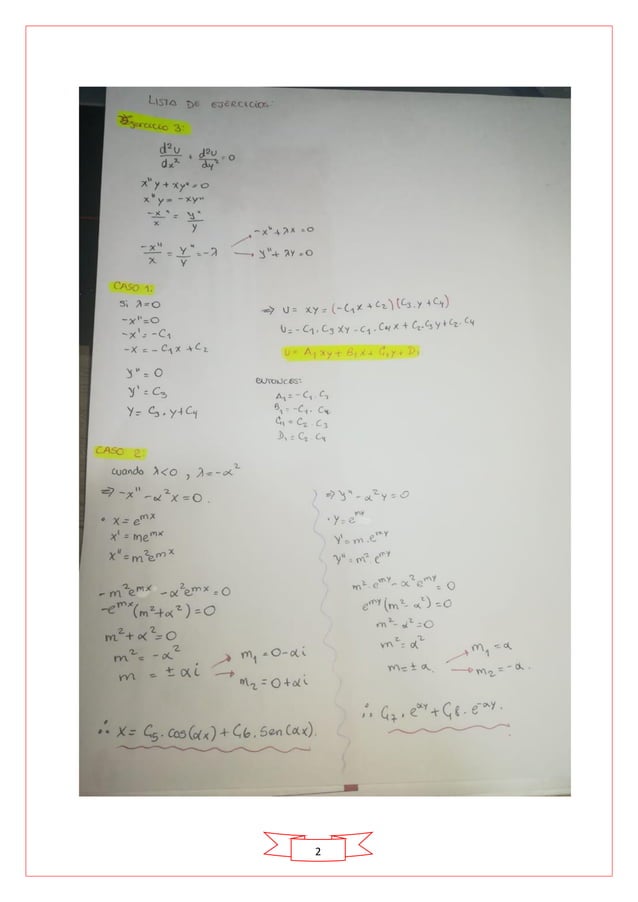 LISTA DE EJERCICIOS:
Ejercicio 3:
d²u/dx² + d²u/dy² = 0
x"y + xy" = 0
x"y = -xy"
-x"/x = y"/y
-x"/x = y"/y = -λ
-x" + λx = 0
y" + λy = 0
CASO 1:
Si λ=0
-x"=0
-x' = -C1
-x = -C1x + C2
y" = 0
y' = C3
y = C3.y+C4
⇒ U = xy = (-C1x + C2)(C3.y + C4)
U = -C1.C3xy - C1.C4x + C2.C3y + C2.C4
U = A1xy + B1x + C1y + D1
ENTONCES:
A1 = -C1.C3
B1 = -C1.C4
C1 = C2.C3
D1 = C2.C4
CASO 2:
cuando λ<0, λ=-α²
⇒ -x" - α²x = 0.
• x = e^mx
x' = me^mx
x" = m²e^mx
-m²e^mx - α²e^mx = 0
-e^mx(m²+α²) = 0
m² + α² = 0
m² = -α²
m = ± αi
m1 = 0-αi
m2 = 0+αi
∴ x = C5.cos(αx) + C6.Sen(αx).
⇒ y" - α²y = 0
• y = e^my
y' = m.e^my
y" = m².e^my
m².e^my - α²e^my = 0
e^my(m² - α²) = 0
m² - α² = 0
m² = α²
m = ± α.
m1 = α
m2 = -α.
∴ C7.e^αy + C8.e^-αy.
2